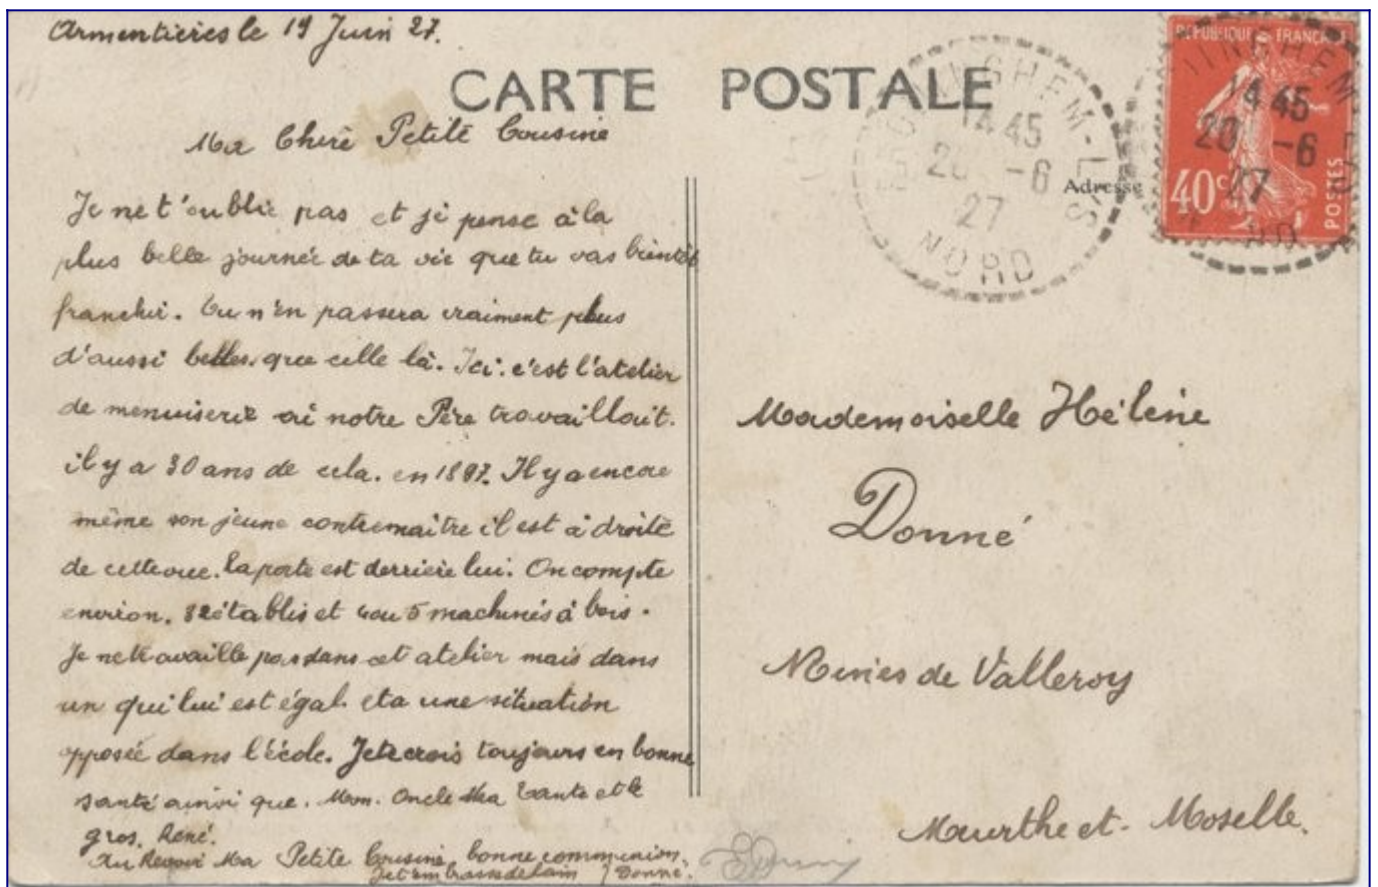 Armentières le 19 Juin 27.
CARTE POSTALE
Ma Chère Petite Cousine
Je ne t'oublie pas et je pense à la
plus belle journée de ta vie que tu vas bientôt
franchir. Tu n'en passera vraiment plus
d'aussi belles. que celle là. Ici. c'est l'atelier
de menuiserie où notre Père travaillait.
il y a 30 ans de cela. en 1897. Il y a encore
même son jeune contremaître il est à droite
de cette vue. la porte est derrière lui. On compte
environ. 32 établis et 4 ou 5 machines à bois.
Je ne travaille pas dans cet atelier mais dans
un qui lui est égal. et a une situation
opposée dans l'école. Je te crois toujours en bonne
santé ainsi que. Mon. Oncle Ma Tante et le
gros. René.
Au Revoir Ma Petite Cousine, bonne communion.
Je t'embrasse de loin Donné.
INGHEM-LYS
14 45
20 -6
27
NORD
Adresse
REPUBLIQUE FRANÇAISE
INGHEM
14 45
20 -6
27
40c
POSTES
Mademoiselle Hélène
Donné
Mines de Valleroy
Meurthe et- Moselle.